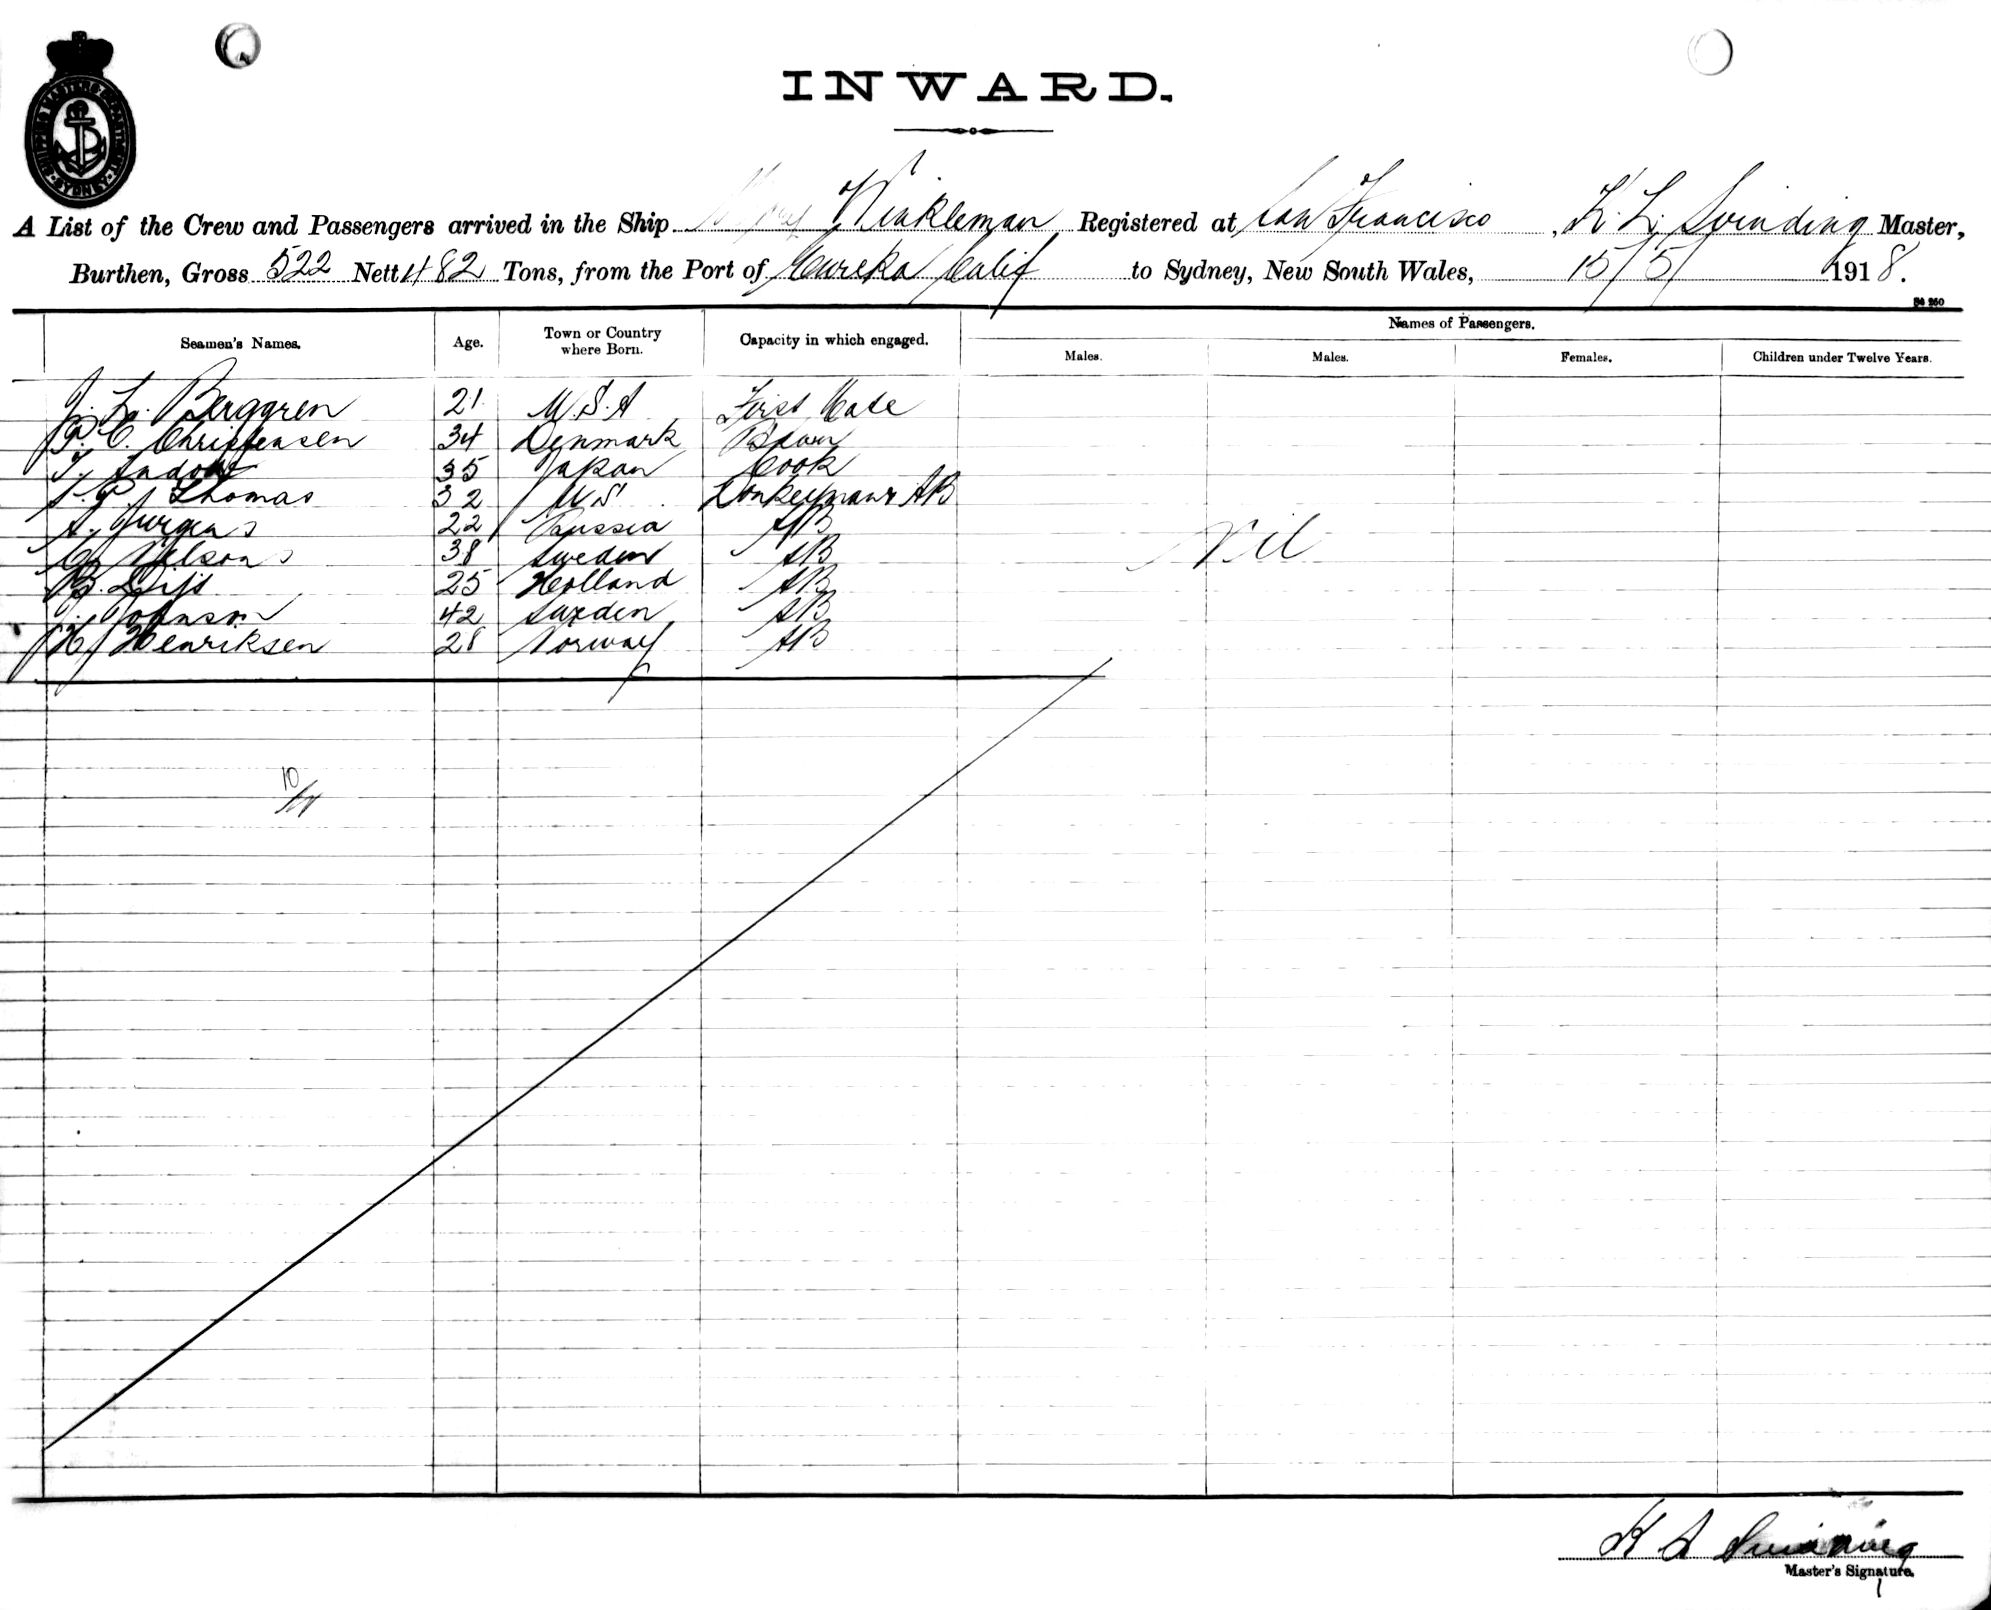 SHIPPING MASTERS DEPARTMENT SYDNEY
INWARD.
A List of the Crew and Passengers arrived in the Ship Winkleman Registered at San Francisco, K. L. Svinding Master,
Burthen, Gross 522 Nett 482 Tons, from the Port of Eureka Calif to Sydney, New South Wales, 15/5/ 1918.
Seamen's Names. Age. Town or Country where Born. Capacity in which engaged. Names of Passengers.
Males. Males. Females. Children under Twelve Years.
J. L. Berggren 21 U.S.A First Mate
P. C. Christensen 34 Denmark Bosun
T. Andow 35 Japan Cook
Thomas 32 U.S. Donkeyman & AB
A. Jurgens 22 Russia AB
Nil
C. Nelson 38 Sweden AB
B. Dijs 25 Holland AB
J. Johnson 42 Sweden AB
H. Henriksen 28 Norway AB
10
K L Svinding
Master's Signature.